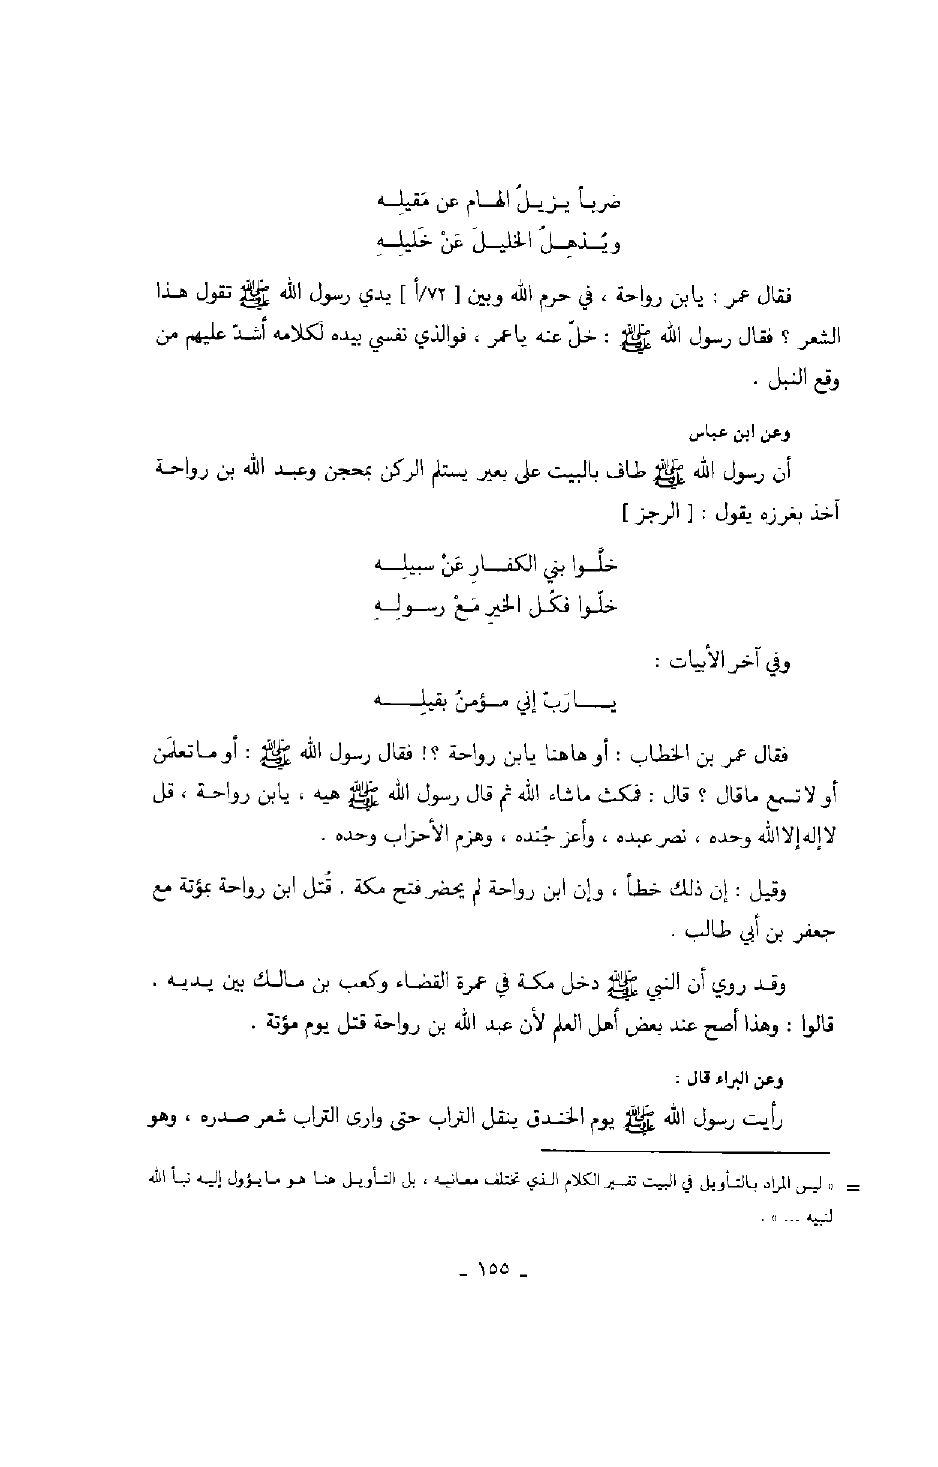 ضرباً يـزيـلُ الهـام عن مَقيلِـه
ويُـذهِـلُ الخليـلَ عَنْ خَليلِـهِ
فقال عمر : يابن رواحة ، في حرم الله وبين [ ٧٢/أ ] يدي رسول الله ﷺ تقول هـذا
الشعر ؟ فقال رسول الله ﷺ : خلّ عنه ياعمر ، فوالذي نفسي بيده لكلامه أشدّ عليهم من
وقع النبل .
وعن ابن عباس
أن رسول الله ﷺ طاف بالبيت على بعير يستلم الركن بمحجن وعبـد الله بن رواحـة
آخذ بغرزه يقول : [ الرجز ]
خلُّـوا بني الكفـارِ عَنْ سبيلِـه
خلّـوا فكُـل الخيرِ مَـعْ رسـولِـهِ
وفي آخر الأبيات :
يـــارَبّ إني مـؤمنُ بقيلِـــه
فقال عمر بن الخطاب : أو هاهنا يابن رواحة ؟! فقال رسول الله ﷺ : أو مـاتعلَمن
أو لاتسمع ماقال ؟ قال : فمكث ماشاء الله ثم قال رسول الله ﷺ هيه ، يابن رواحـة ، قل
لاإله إلاالله وحده ، نصر عبده ، وأعز جُنده ، وهزم الأحزاب وحده .
وقيل : إن ذلك خطأ ، وإن ابن رواحة لم يحضر فتح مكة . قُتل ابن رواحة بمؤتة مع
جعفر بن أبي طالب .
وقـد روي أن النبي ﷺ دخل مكـة في عمرة القضـاء وكعب بن مـالـك بين يـديـه .
قالوا : وهذا أصح عند بعض أهل العلم لأن عبد الله بن رواحة قتل يوم مؤتة .
وعن البراء قال :
رأيت رسول الله ﷺ يوم الخنـدق ينقل التراب حتى وارى التراب شعر صـدره ، وهو
= « ليس المراد بالتأويل في البيت تفسير الكلام الـذي تختلف معـانيـه ، بل التـأويـل هنـا هو مـايـؤول إليـه نبـأ الله
لنبيه ... » .
ـ ١٥٥ ـ